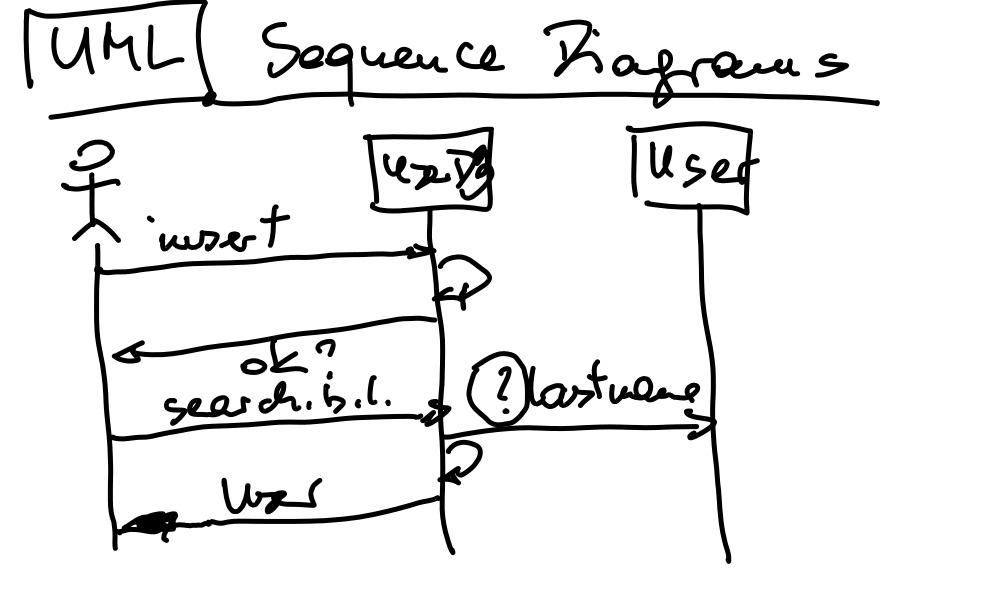 UML Sequence Diagrams
UserDB
User
insert
ok?
search.b.l.
? lastname
User